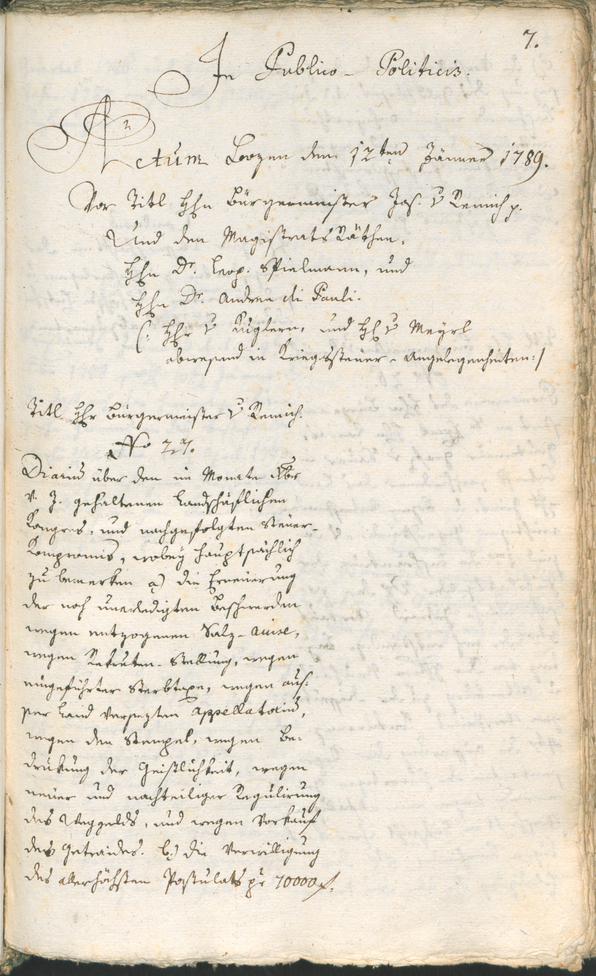 7.
In Publico-Politicis.
Actum Bozen den 12ten Jänner 1789.
Vor Titl Hhn Bürgermeister Jos. v Remich p.
Und den Magistrats Räthen,
Hhn Dr. Leop. Spielmann, und
Hhn Dr. Andree di Pauli.
(: Hhr v Kuglern, und Hh v Meyrl
abwesend in Kriegssteuer-Angelegenheiten:)
Titl Hhr Bürgermeister v Remich.
No 27.
Diarium über den im Monate Xbr
v. J. gehaltenen Landschäftlichen
Kongress, und nachgefolgten Steuer-
Kompromis, wobey hauptsächlich
zu bemerken a) die Erneuerung
der noch unerledigten Beschwerden
wegen entzogenen Salz-Auise,
wegen Rekruten-Stellung, wegen
eingeführter Sterbtaxe, wegen aus-
ser Land versezten Appellatorium,
wegen den Stempel, wegen Be-
drükung der Geistlichkeit, wegen
neuer und nachteiliger Regulirung
des Weggelds, und wegen Vorkauf
des Getraides. b.) die Verwilligung
des allerhöchsten Postulats pr 70000 f.